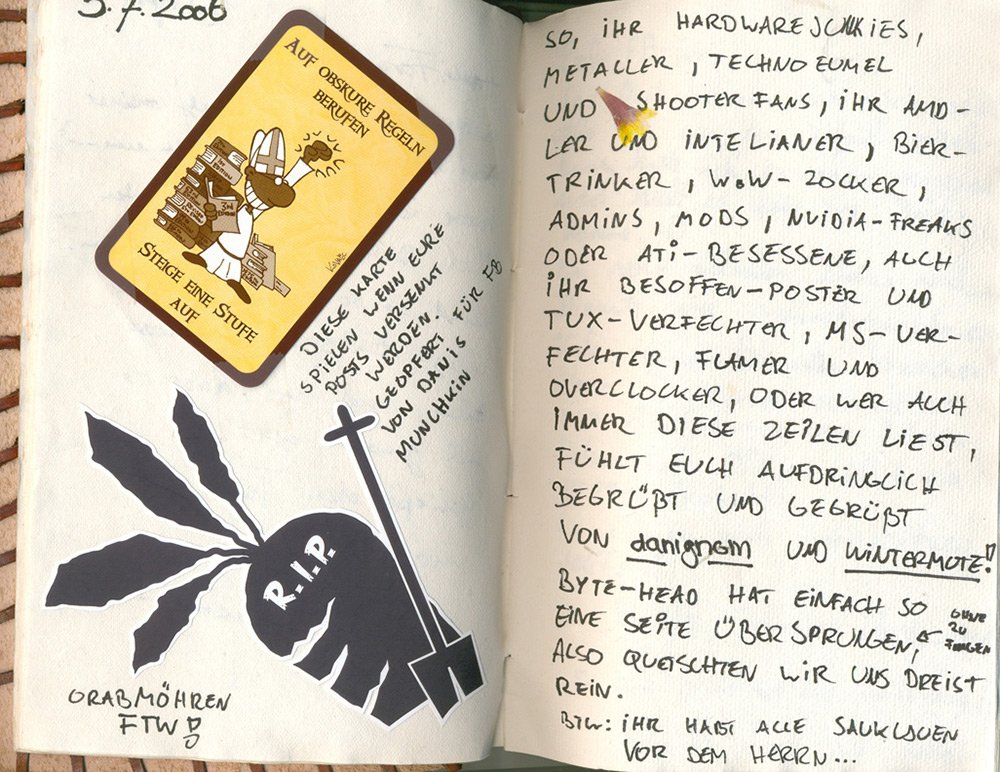 3.7.2006
AUF OBSKURE REGELN
BERUFEN
3RD EDITION
STEIGE EINE STUFE
AUF
KOVALIC
DIESE KARTE
SPIELEN WENN EURE
POSTS VERSENKT
WERDEN.
GEOPFERT FÜR FB
VON DANIS
MUNCHKIN
R.I.P.
GRABMÖHREN
FTW!
SO, IHR HARDWAREJUNKIES,
METALLER, TECHNOEUMEL
UND SHOOTERFANS, IHR AMD-
LER UND INTELIANER, BIER-
TRINKER, WoW-ZOCKER,
ADMINS, MODS, NVIDIA-FREAKS
ODER ATI-BESESSENE, AUCH
IHR BESOFFEN-POSTER UND
TUX-VERFECHTER, MS-VER-
FECHTER, FLAMER UND
OVERCLOCKER, ODER WER AUCH
IMMER DIESE ZEILEN LIEST,
FÜHLT EUCH AUFDRINGLICH
BEGRÜßT UND GEGRÜßT
VON danignom UND WINTERMUTE!
BYTE-HEAD HAT EINFACH SO
EINE SEITE ÜBERSPRUNGEN,
OHNE
ZU
FRAGEN
ALSO QUETSCHTEN WIR UNS DREIST
REIN.
BTW: IHR HABT ALLE SAUKLAUEN
VOR DEM HERRN...